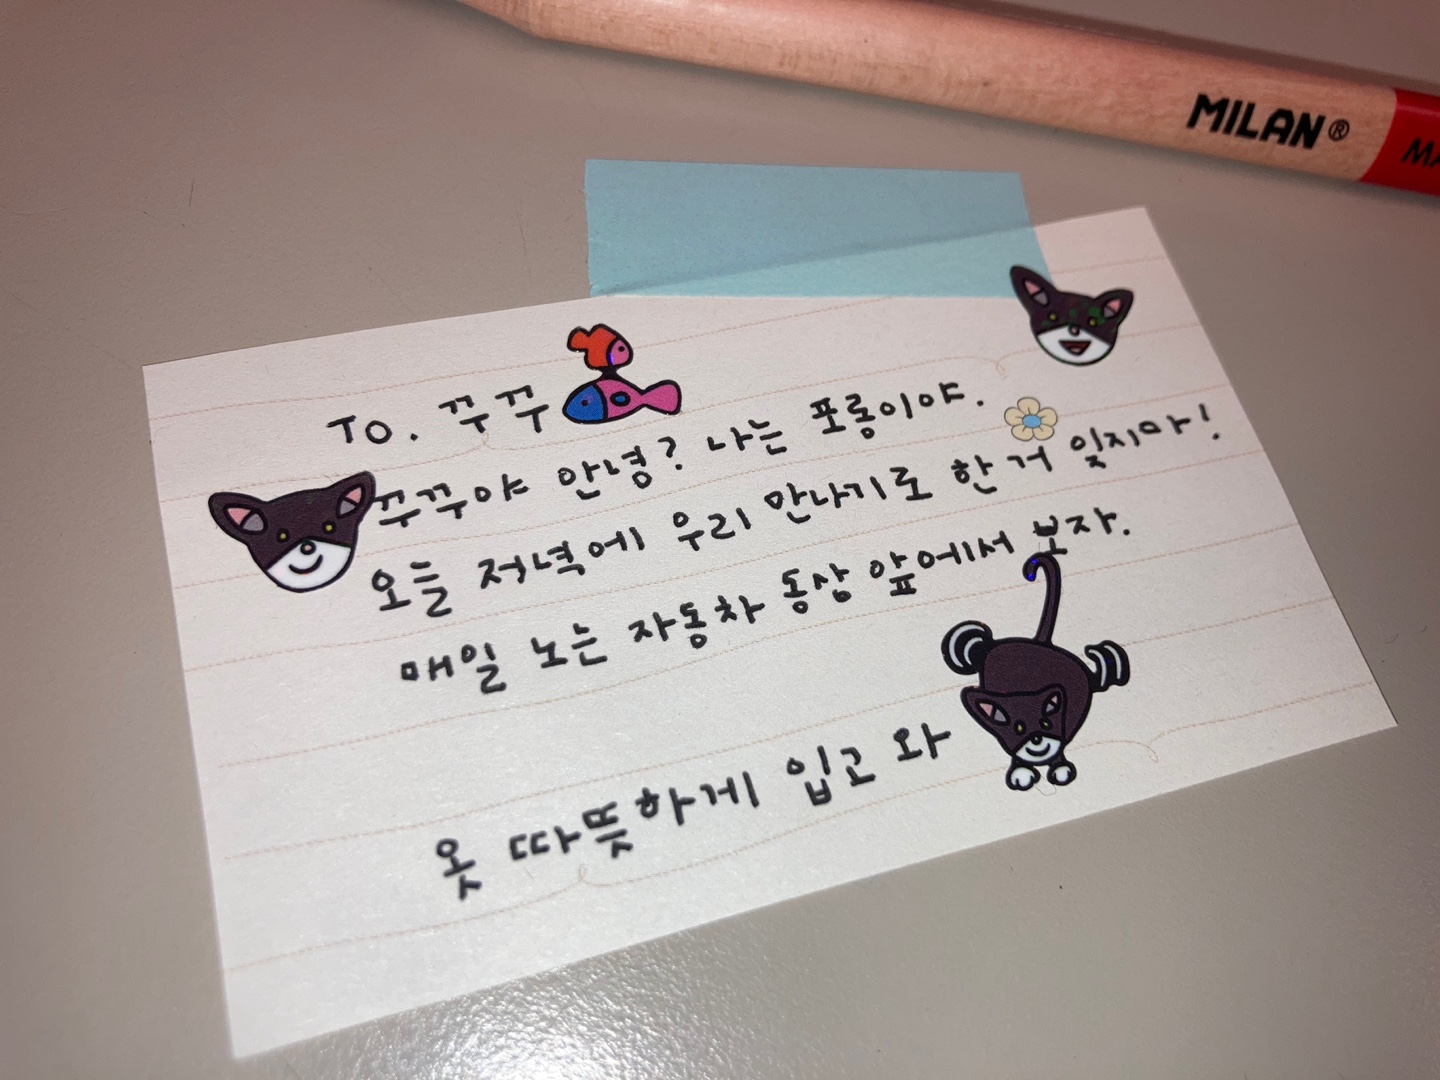 MILAN®
TO. 꾸꾸
꾸꾸야 안녕? 나는 포롱이야.
오늘 저녁에 우리 만나기로 한 거 잊지마!
매일 노는 자동차 동상 앞에서 보자.
옷 따뜻하게 입고 와